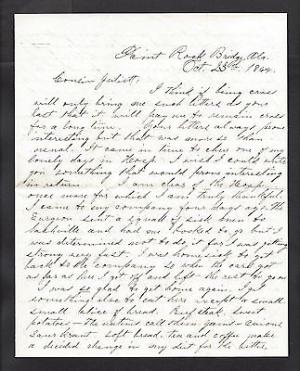 Paint Rock Bridge, Ala.
Oct 25th 1864.
Cousin Juliet,
I think if being cross
will only bring me such letters as your
last that it will pay me to remain cross
for a long time. Your letters always prove
interesting but that was more so than
usual. It came in time to cheer one of my
lonely days in Hosp. I wish I could write
you something that would prove interesting
in return. I am clear of the Hosp.
once more for which I am truly thankful.
I came to my company four days ago. The
Surgeon sent a squad of sick men to
Nashville and had me booked to go but I
was determined not to do it for I was getting
strong very fast. I was homesick to get
back to the company so under the care
as far as here I got off and left the rest to go on
I was so glad to get home again. I get
something else to eat here except a small
small slice of bread. Beef steak, sweet
potatoes - the natives call them yams - onions
Saur Kraut, soft bread, tea and coffee make
a decided change in my diet for the better